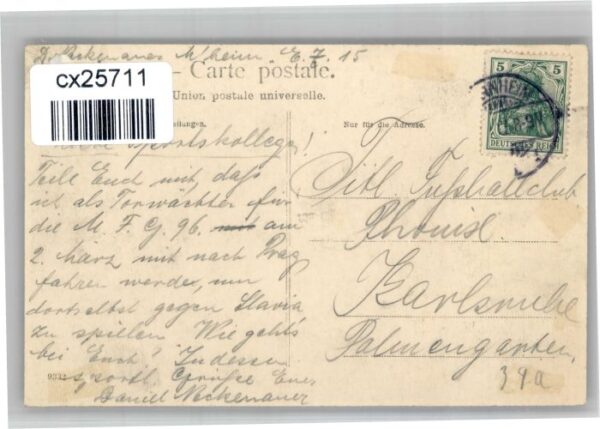 D. Neckenauer M'heim E. 7. 15
cx25711
Carte postale.
Union postale universelle.
Nur für die Adresse.
Sportskollegen!
Teile Euch mit, daß
ich als Torwächter für
die M. F. G. 96. am
2. März mit nach Prag
fahren werde, um
dortselbst gegen Slavia
zu spielen. Wie gehts
bei Euch? Indessen
sportl. Grüße Euer
Daniel Neckenauer
5 5
DEUTSCHES REICH
Titl. Fussballclub
Phönix
Karlsruhe
Palmengarten
39a